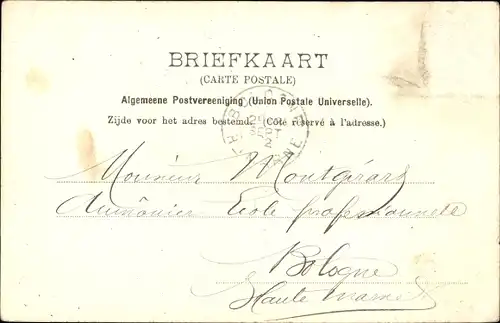 BRIEFKAART
(CARTE POSTALE)
Algemeene Postvereeniging (Union Postale Universelle).
Zijde voor het adres bestemd. (Côté réservé à l'adresse.)
BOLOGNE
SEPT
2
Monsieur Montgérard
Aumônier Ecole professionnelle
Bologne
Haute Marne